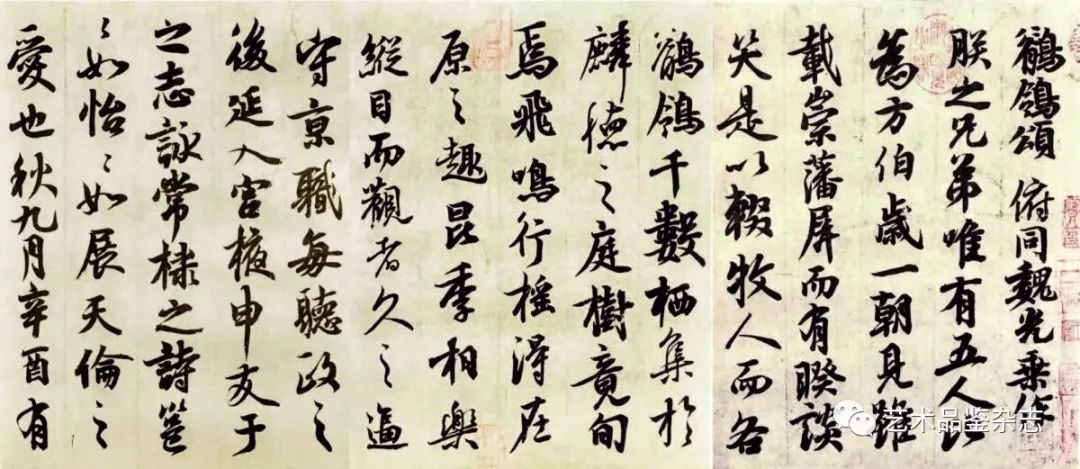 鶺鴒頌 俯同魏光乗作
朕之兄弟唯有五人比
為方伯歲一朝見雖
載崇藩屏而有睽談
笑是以輟牧人而各
鶺鴒千數栖集於
麟徳之庭樹竟旬
焉飛鳴行搖得在
原之趣昆季相樂
縱目而觀者久之逼
守京職每聽政之
後延入宮掖申友于
之志詠常棣之詩邕
〻如怡〻如展天倫之
愛也秋九月辛酉有
艺术品鉴杂志